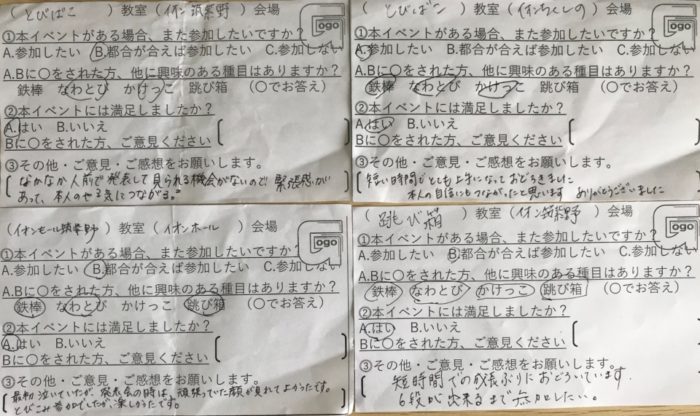 (とびばこ)教室(イオン筑紫野)会場
Logo
①本イベントがある場合、また参加したいですか?
A.参加したい B.都合が合えば参加したい C.参加しない
A.Bに〇をされた方、他に興味のある種目はありますか?
鉄棒 なわとび かけっこ 跳び箱 (〇でお答え)
②本イベントには満足しましたか?
A.はい B.いいえ
Bに〇をされた方、ご意見ください
③その他・ご意見・ご感想をお願いします。
なかなか人前で発表して見られる機会がないので 緊張感が
あって、本人のやる気につながる。
(とびばこ)教室(イオンちくしの)会場
Logo
①本イベントがある場合、また参加したいですか?
A.参加したい B.都合が合えば参加したい C.参加しない
A.Bに〇をされた方、他に興味のある種目はありますか?
鉄棒 なわとび かけっこ 跳び箱 (〇でお答え)
②本イベントには満足しましたか?
A.はい B.いいえ
Bに〇をされた方、ご意見ください
③その他・ご意見・ご感想をお願いします。
短い時間でとても上手になっておどろきました
本人の自信にもつながったと思います ありがとうございました
(イオンモール筑紫野)教室(イオンホール)会場
Logo
①本イベントがある場合、また参加したいですか?
A.参加したい B.都合が合えば参加したい C.参加しない
A.Bに〇をされた方、他に興味のある種目はありますか?
鉄棒 なわとび かけっこ 跳び箱 (〇でお答え)
②本イベントには満足しましたか?
A.はい B.いいえ
Bに〇をされた方、ご意見ください
③その他・ご意見・ご感想をお願いします。
最初泣いていたが、発表会の時は、頑張っていた顔が見れてよかったです。
とびこみ参加でしたが、楽しかったです。
(跳び箱)教室(イオン筑紫野)会場
Logo
①本イベントがある場合、また参加したいですか?
A.参加したい B.都合が合えば参加したい C.参加しない
A.Bに〇をされた方、他に興味のある種目はありますか?
鉄棒 なわとび かけっこ 跳び箱 (〇でお答え)
②本イベントには満足しましたか?
A.はい B.いいえ
Bに〇をされた方、ご意見ください
③その他・ご意見・ご感想をお願いします。
短時間での成長ぶりにおどろいています。
6段が出来るまで参加したい。